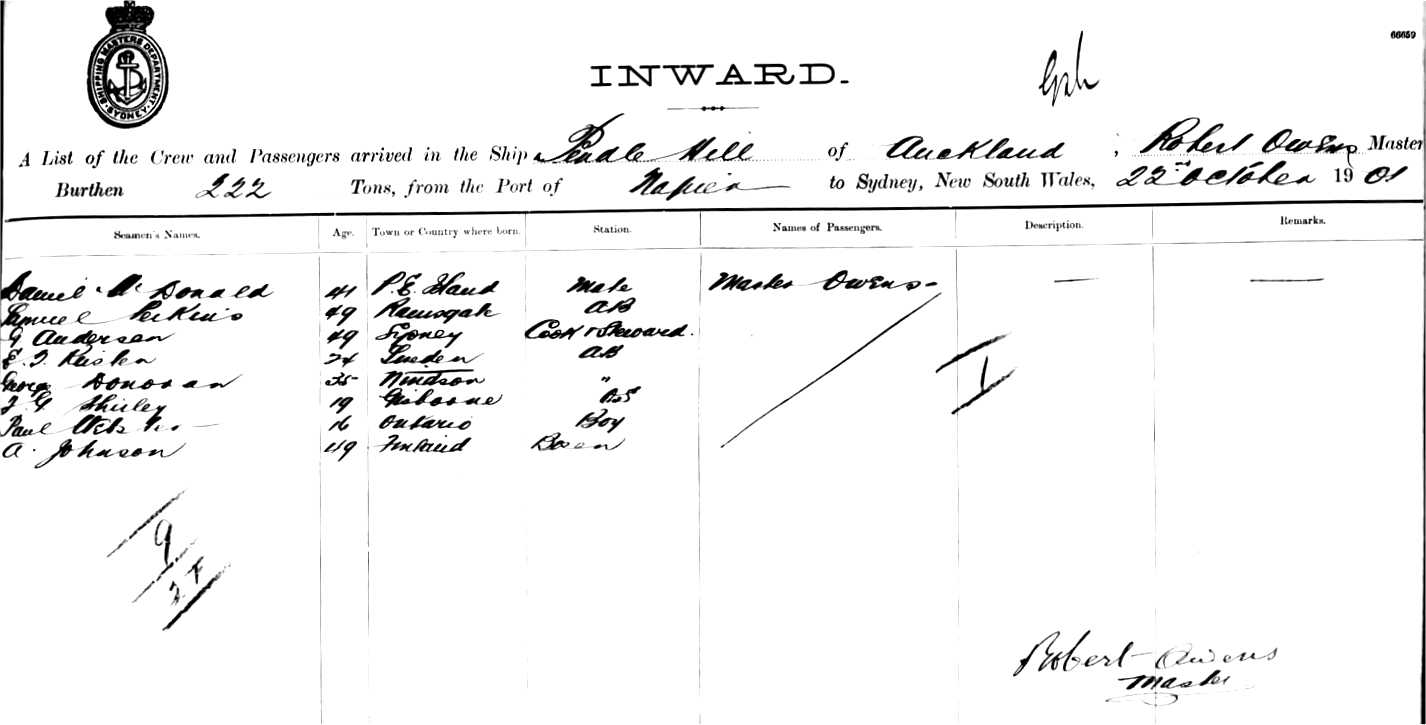 SHIPPING MASTERS DEPARTMENT. SYDNEY.
66659
INWARD.
A List of the Crew and Passengers arrived in the Ship Pendle Hill of Auckland, Robert Owens Master
Burthen 222 Tons, from the Port of Napier to Sydney, New South Wales, 22nd October 1901
Seamen's Names. Age. Town or Country where born. Station. Names of Passengers. Description. Remarks.
Daniel McDonald 41 P.E. Island Mate Master Owens — —
Samuel Perkins 49 Ramsgate AB
G Andersen 49 Sydney Cook & Steward.
E. 24 Sweden AB
George Donovan 35 Windson "
F. G Shirley 19 Gisborne OS
Paul 16 Ontario Boy
A. Johnson 49 Finland Bosen
1
9
2 F
Robert Owens
Master